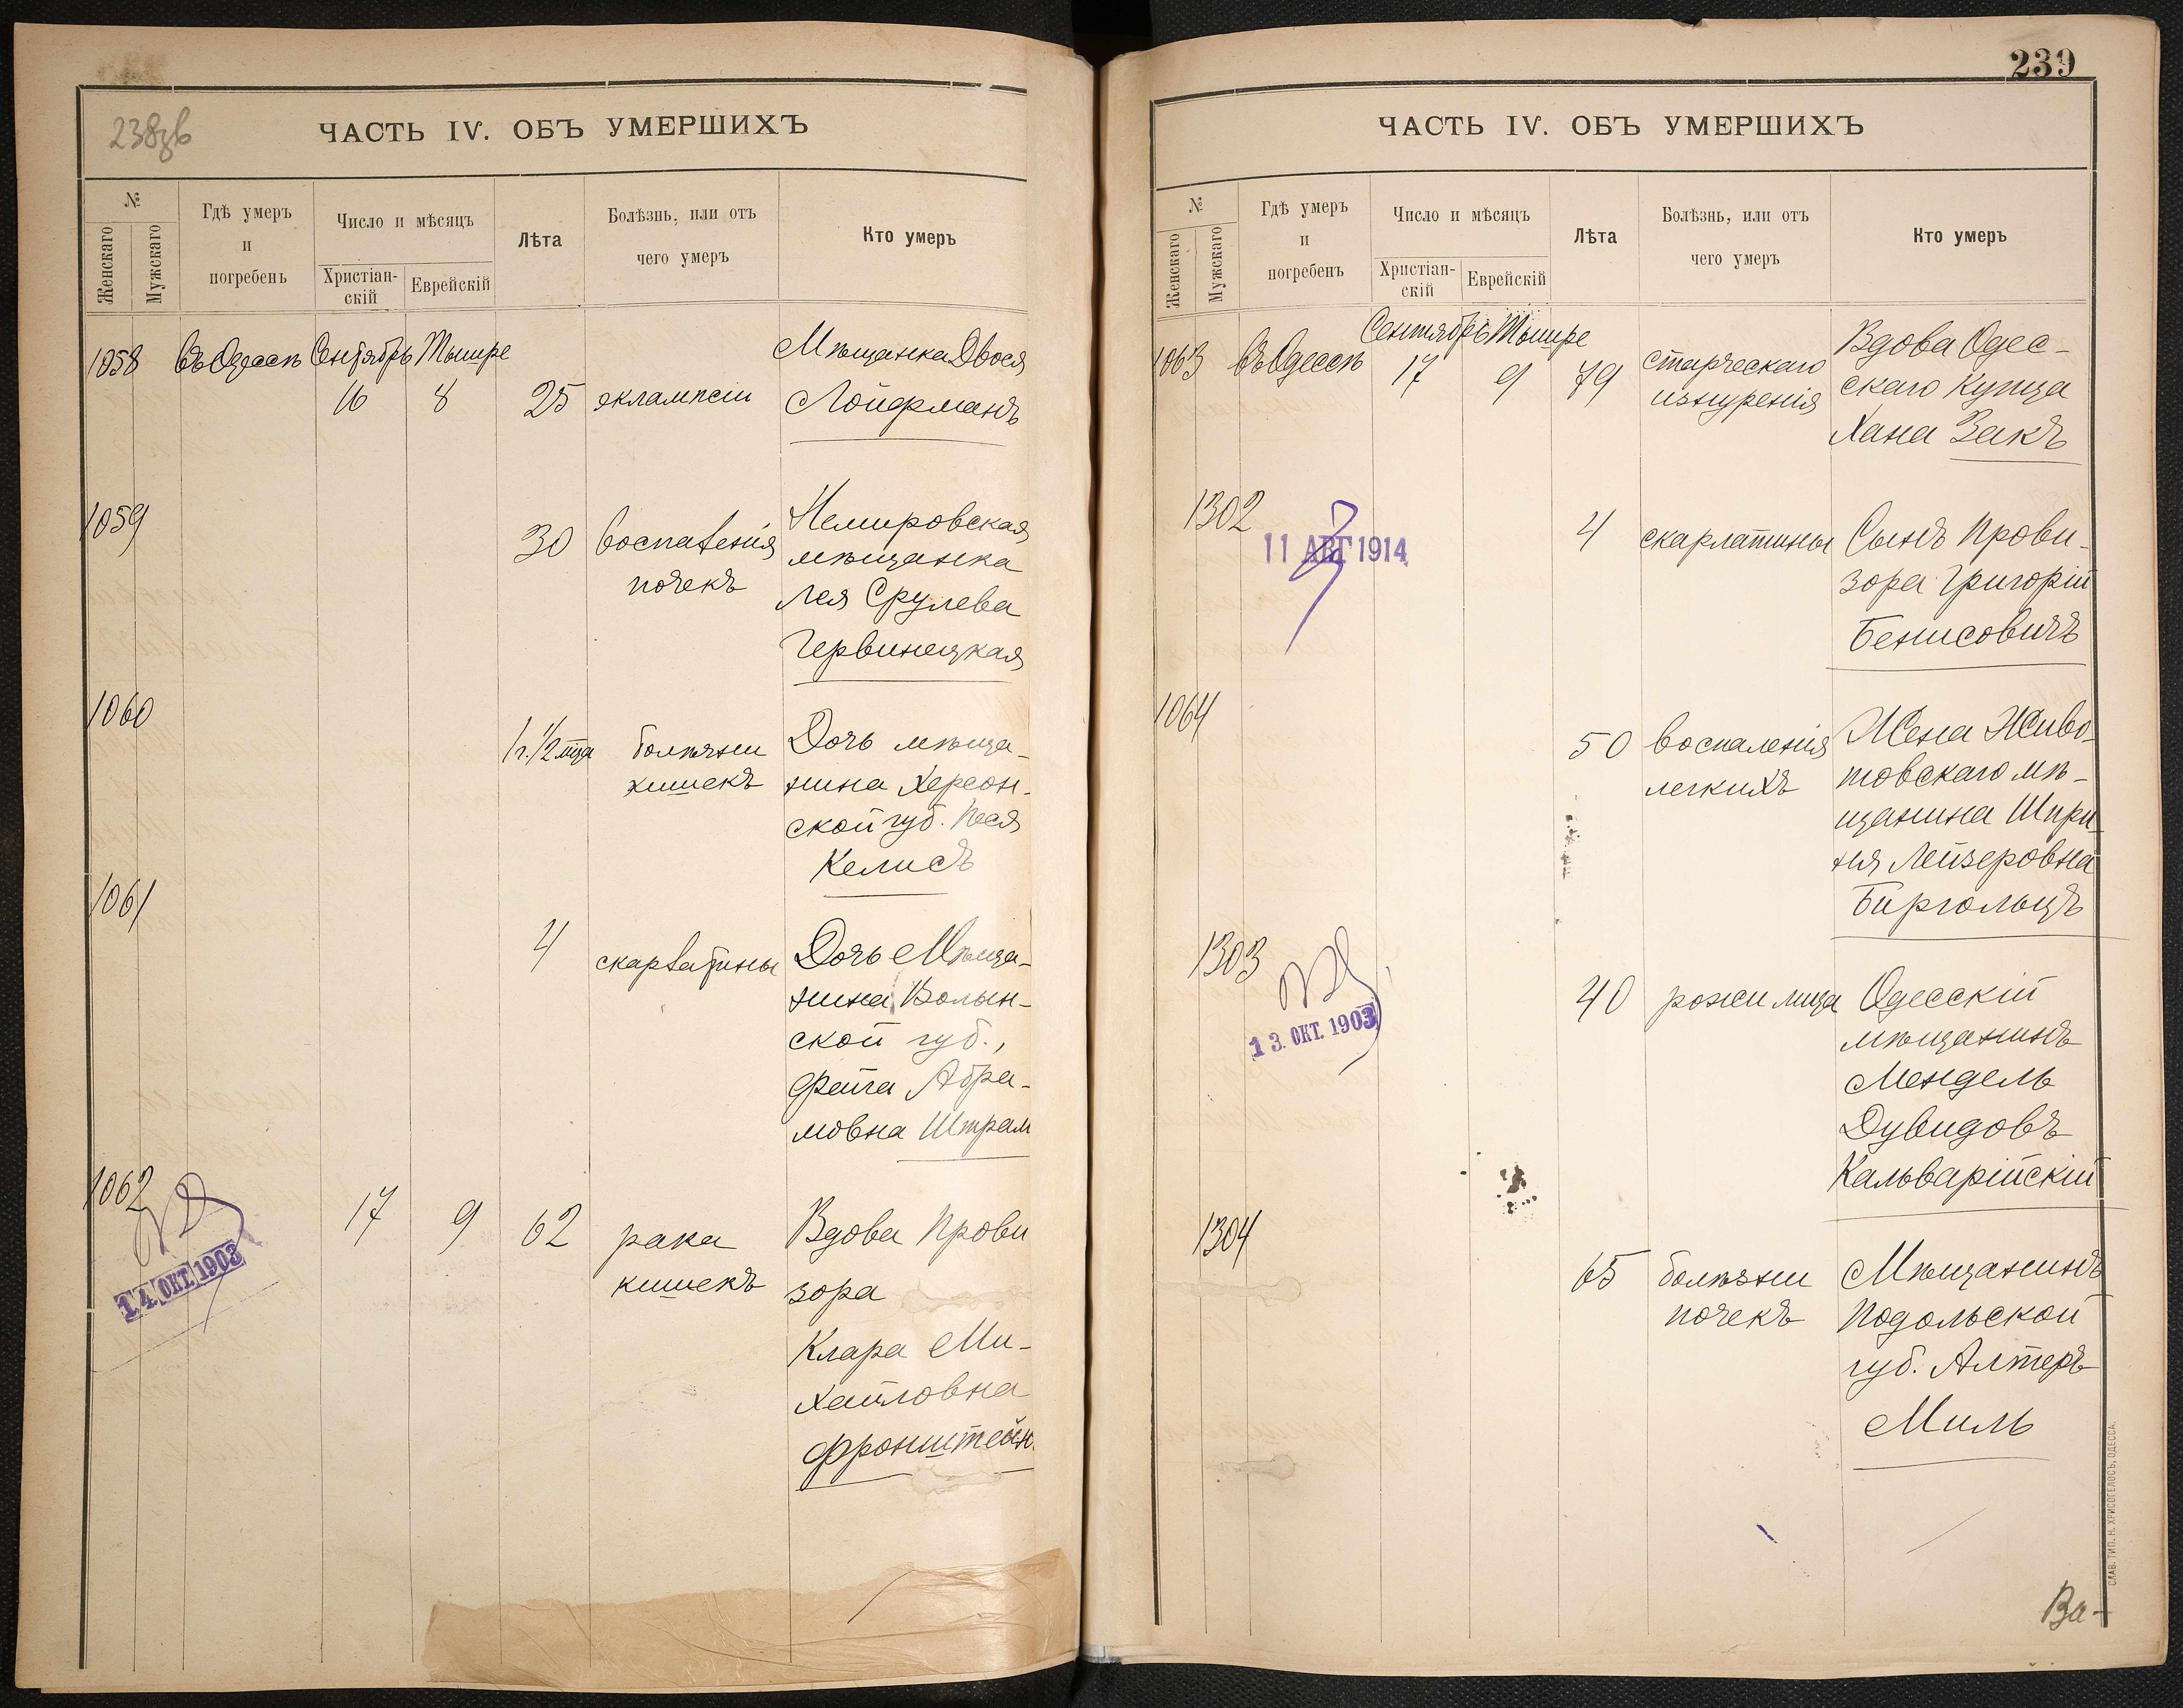 238зв
ЧАСТЬ IV. ОБЪ УМЕРШИХЪ
№
Женскаго
Мужскаго
Гдѣ умеръ
и
погребенъ
Число и мѣсяцъ
Христіан-
скій
Еврейскій
Лѣта
Болѣзнь, или отъ
чего умеръ
Кто умеръ
1058 въ Одессѣ Сентябрь Тишре
16 8 25 эклампсіи
Мѣщанка Двося
Лойфманъ
1059
30 воспаленія
почекъ
Немировская
мѣщанка
Лея Срулева
Червинецкая
1060
1 г. 1/2 мца болѣзни
кишекъ
Дочь мѣща-
нина Херсон-
ской губ. Песя
Келисъ
1061
4 скарлатины
Дочь Мѣща-
нина Волын-
ской губ.,
Фейга Абра-
мовна Штрам
1062
14 ОКТ. 1903
17 9 62 рака
кишекъ
Вдова Прови
зора
Клара Ми-
хайловна
Фронштейн
239
ЧАСТЬ IV. ОБЪ УМЕРШИХЪ
№
Женскаго
Мужскаго
Гдѣ умеръ
и
погребенъ
Число и мѣсяцъ
Христіан-
скій
Еврейскій
Лѣта
Болѣзнь, или отъ
чего умеръ
Кто умеръ
1063 въ Одессѣ Сентябрь Тишре
17 9 79 старческаго
изнуренія
Вдова Одес-
скаго Купца
Хана Закъ
1302
11 АВГ 1914
4 скарлатины
Сынъ Прови-
зора Григорій
Бенисовичъ
1064
50 воспаленія
легкихъ
Жена Живо-
товскаго мѣ-
щанина Шпри-
нця Лейзеровна
Биргольцъ
1303
13. ОКТ. 1903
40 рожи лица
Одесскій
мѣщанинъ
Мендель
Дувидовъ
Кальварійскій
1304
65 болѣзни
почекъ
Мѣщанинъ
Подольской
губ. Алтеръ
Миль
За-
СЛАВ. ТИП. Н. ХРИСОГЕЛОСЪ, ОДЕССА.